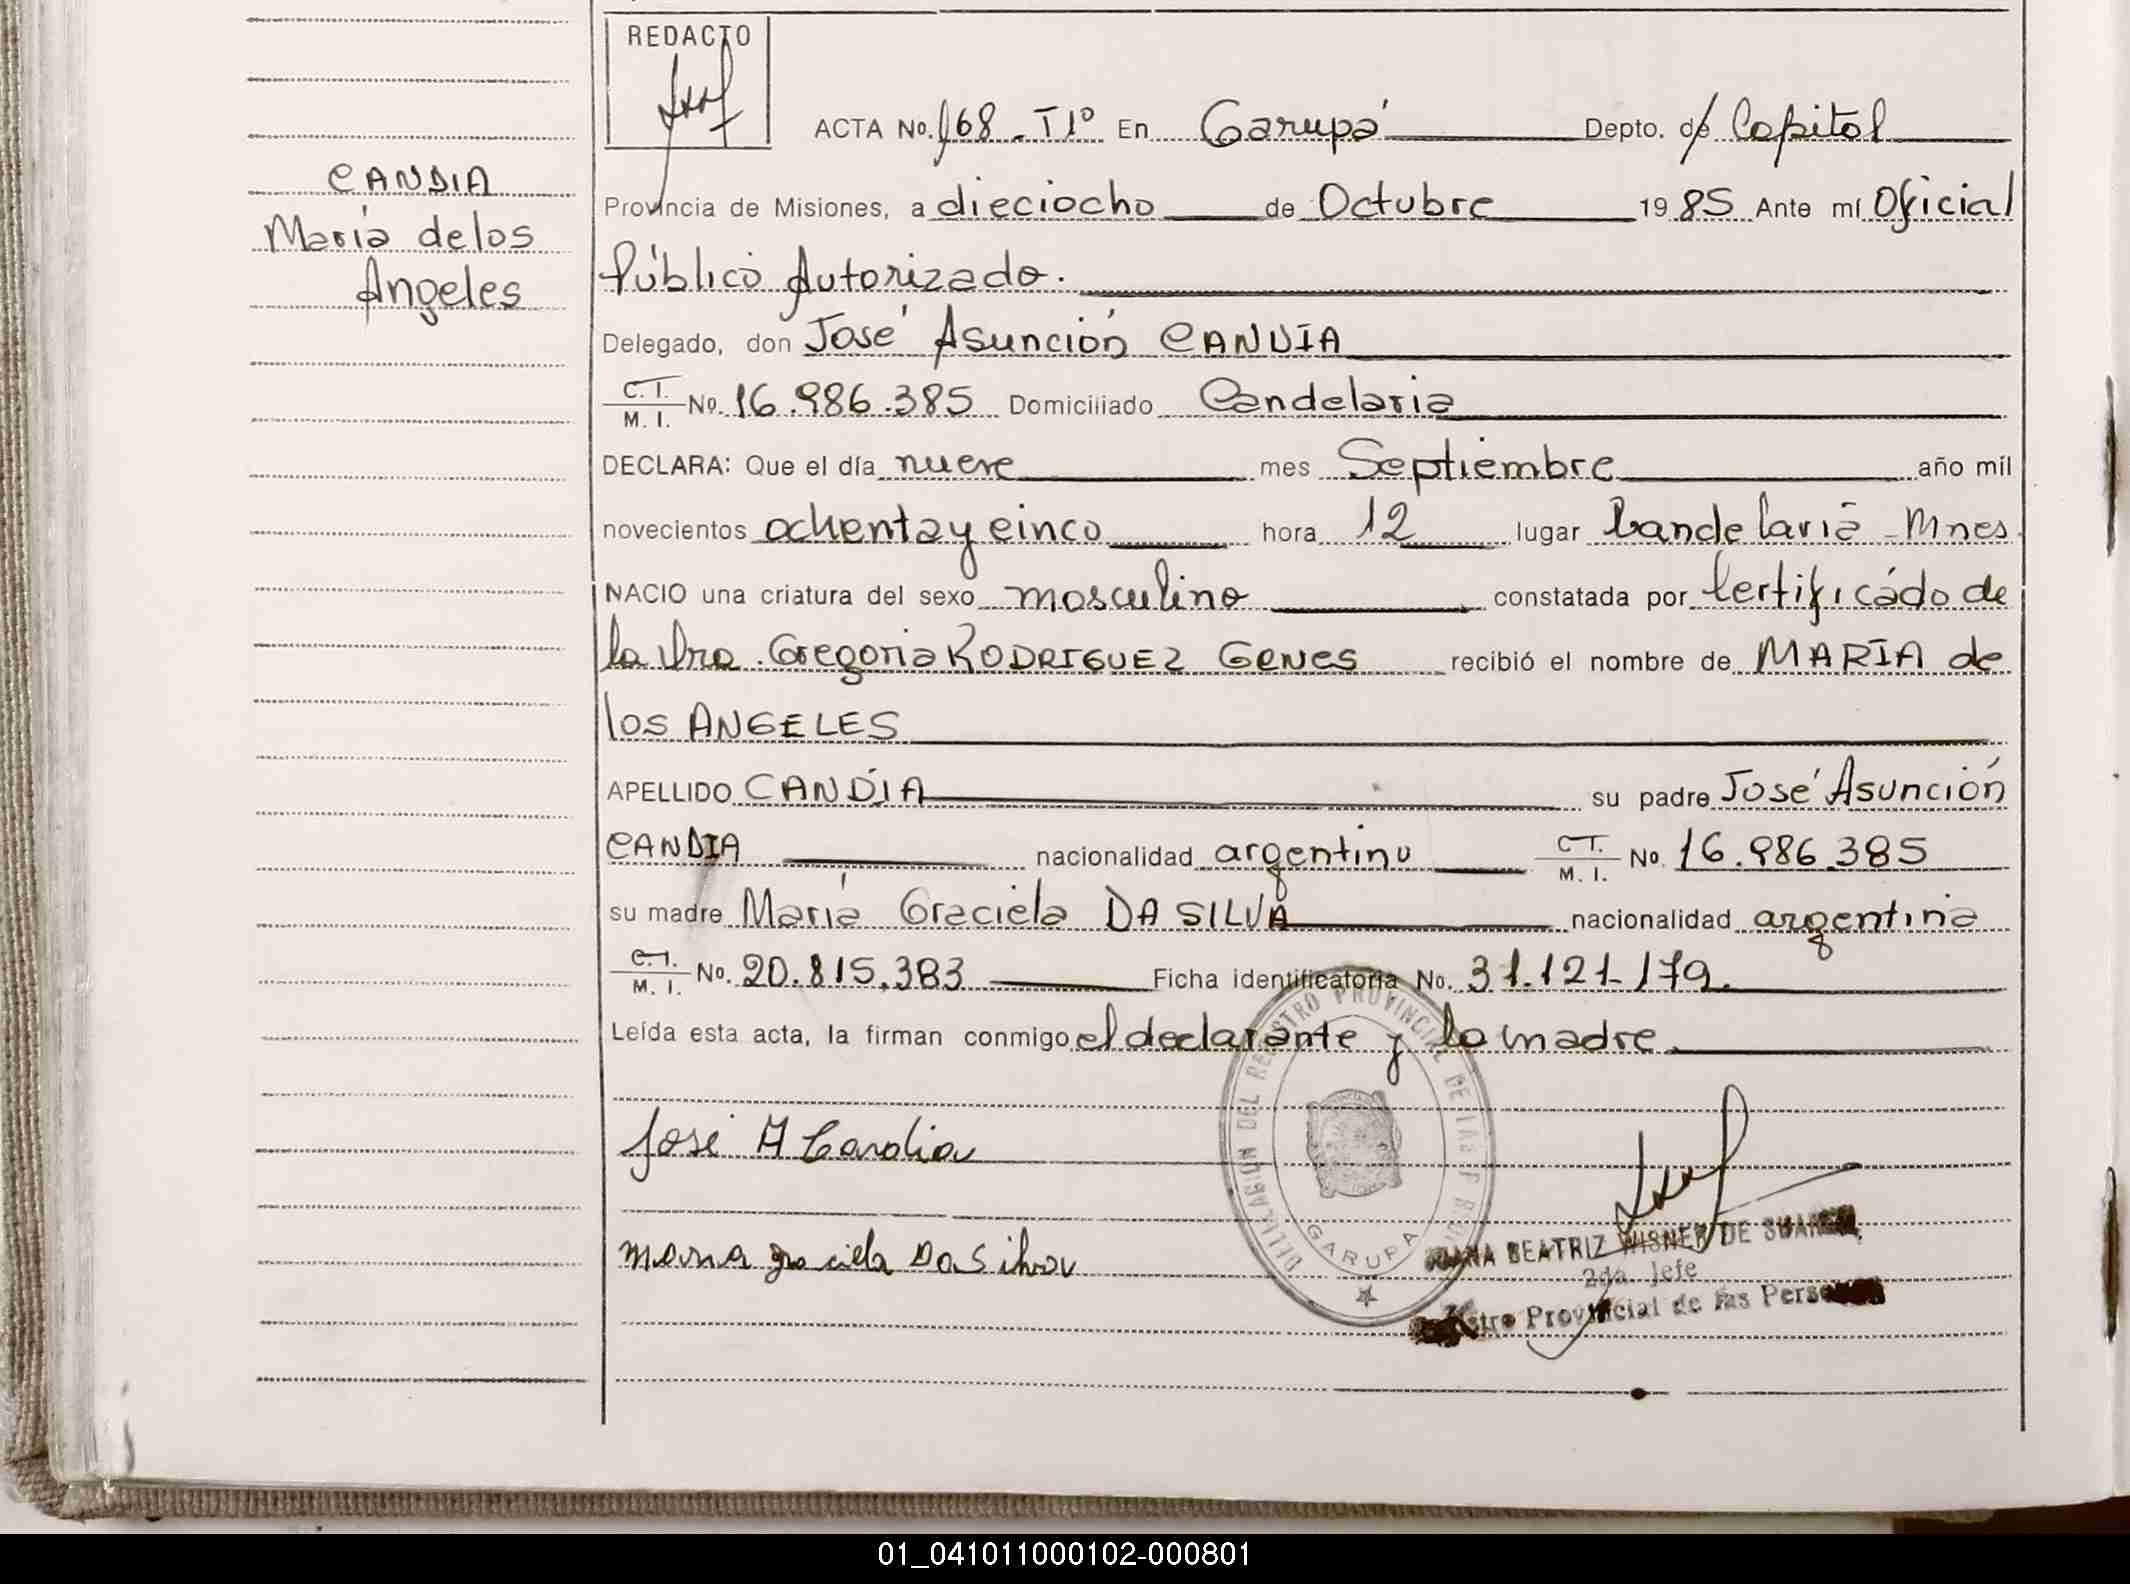 REDACTO
ACTA No. 168 - T1º En Garupá Depto. de/ Capital
CANDIA
Provincia de Misiones, a dieciocho de Octubre 1985 Ante mí Oficial
María de los
Público Autorizado.
Angeles
Delegado, don José Asunción CANDIA
C. I. / M. I. No. 16.986.385 Domiciliado Candelaria
DECLARA: Que el día nueve mes Septiembre año mil
novecientos ochenta y cinco hora 12 lugar Candelaria - Mnes.
NACIO una criatura del sexo masculino constatada por Certificado de
la Dra. Gregoria RODRIGUEZ GENES recibió el nombre de MARÍA de
los ANGELES
APELLIDO CANDIA su padre José Asunción
CANDIA nacionalidad argentino C. I. / M. I. No. 16.986.385
su madre María Graciela DA SILVA nacionalidad argentina
C. I. / M. I. No. 20.815.383 Ficha identificatoria No. 31.121.179.
Leída esta acta, la firman conmigo el declarante y la madre.
José A Candia
maria graciela Da Silva
DELEGACION DEL REGISTRO PROVINCIAL DE LAS
GARUPA
JUANA BEATRIZ WISNER DE SUAREZ
2da. Jefe
Registro Provincial de las Personas
01_041011000102-000801